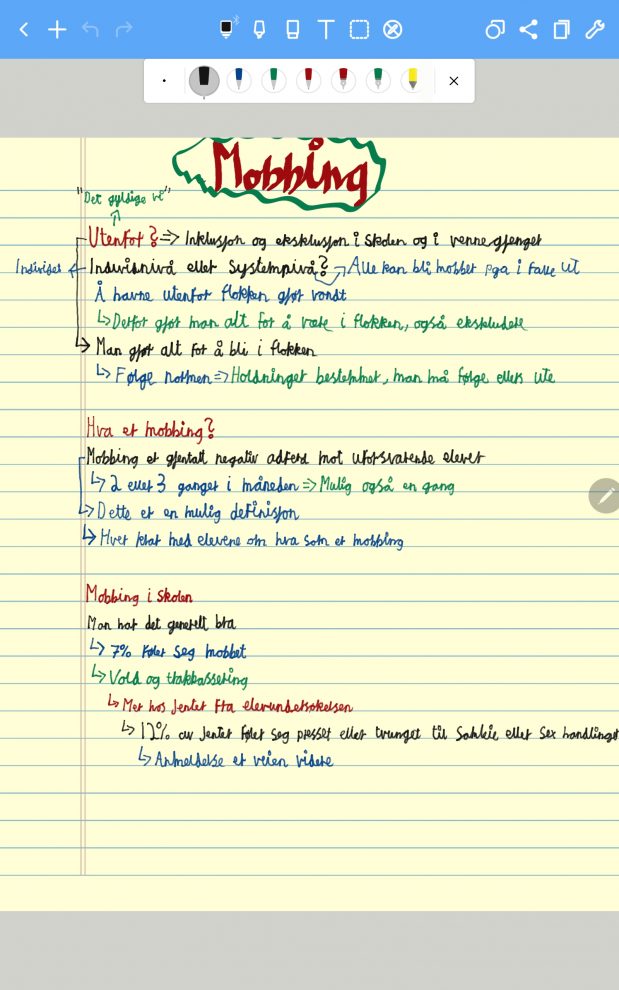 Mobbing
"Det gyldige vi"
Utenfor? => Inklusjon og eksklusjon i skolen og i vennegjenget
Individet
Individnivå eller systemnivå? → Alle kan bli mobbet pga i falle ut
Å havne utenfor flokken gjør vondt
↳ Derfor gjør man alt for å være i flokken, også ekskludere
Man gjør alt for å bli i flokken
↳ Følge normen => Holdninger bestemmer, man må følge ellers ute
Hva er mobbing?
Mobbing er gjentatt negativ adferd mot uforsvarende elever
↳ 2 eller 3 ganger i måneden => Mulig også en gang
Dette er en mulig definisjon
↳ Hver klar med elevene om hva som er mobbing
Mobbing i skolen
Man har det generelt bra
↳ 7% føler seg mobbet
↳ Vold og trakkassering
↳ Mer hos jenter fra elevundersøkelsen
↳ 12% av jenter føler seg presset eller tvunget til eller sex handlinger
↳ Anmeldelse er veien videre